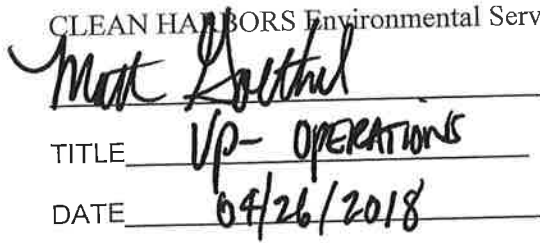 CLEAN HARBORS Environmental Serv
Matt
TITLE VP- OPERATIONS
DATE 04/26/2018